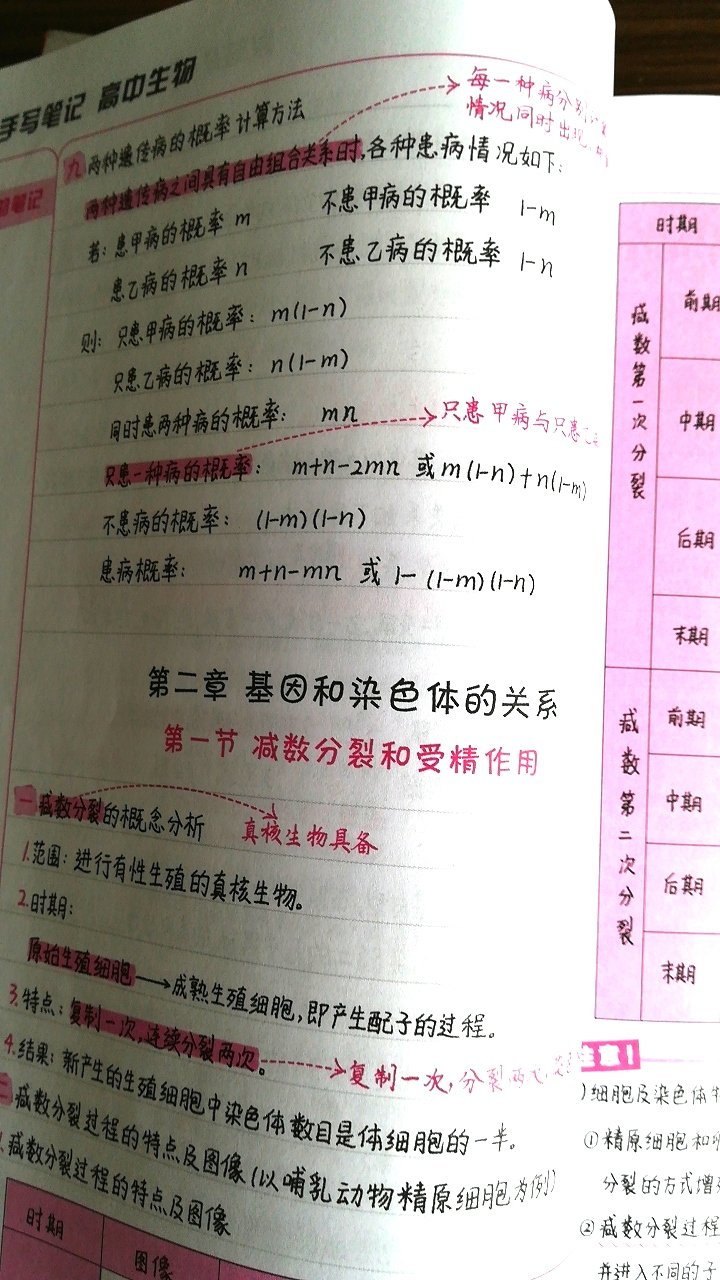 手写笔记 高中生物
笔记
每一种病分别
情况同时出现
九 两种遗传病的概率计算方法
两种遗传病之间具有自由组合关系时,各种患病情况如下:
若: 患甲病的概率 m 不患甲病的概率 1-m
患乙病的概率 n 不患乙病的概率 1-n
则: 只患甲病的概率: m(1-n)
只患乙病的概率: n(1-m)
同时患两种病的概率: mn
只患甲病与只患
只患一种病的概率: m+n-2mn 或 m(1-n)+n(1-m)
不患病的概率: (1-m)(1-n)
患病概率: m+n-mn 或 1-(1-m)(1-n)
第二章 基因和染色体的关系
第一节 减数分裂和受精作用
一 减数分裂的概念分析
真核生物具备
1.范围: 进行有性生殖的真核生物。
2.时期:
原始生殖细胞→成熟生殖细胞,即产生配子的过程。
3.特点: 复制一次,连续分裂两次。
复制一次,分裂两次
4.结果: 新产生的生殖细胞中染色体数目是体细胞的一半。
二 减数分裂过程的特点及图像(以哺乳动物精原细胞为例)
1.减数分裂过程的特点及图像
时期 图像
时期
减数第一次分裂
前期
中期
后期
末期
减数第二次分裂
前期
中期
后期
末期
注意1
)细胞及染色体
①精原细胞和
分裂的方式增
②减数分裂过程
并进入不同的子